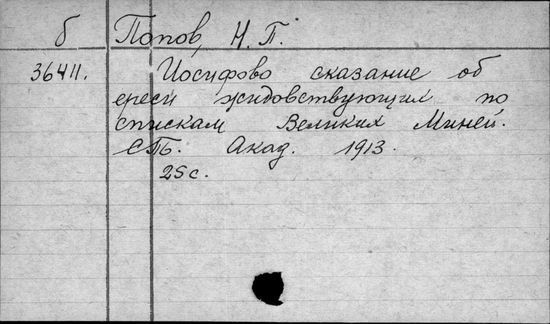 б Попов, Н. П.
36411. Иосифово сказание об
ереси жидовствующих по
спискам Великих Миней.
СПб. Акад. 1913.
25с.